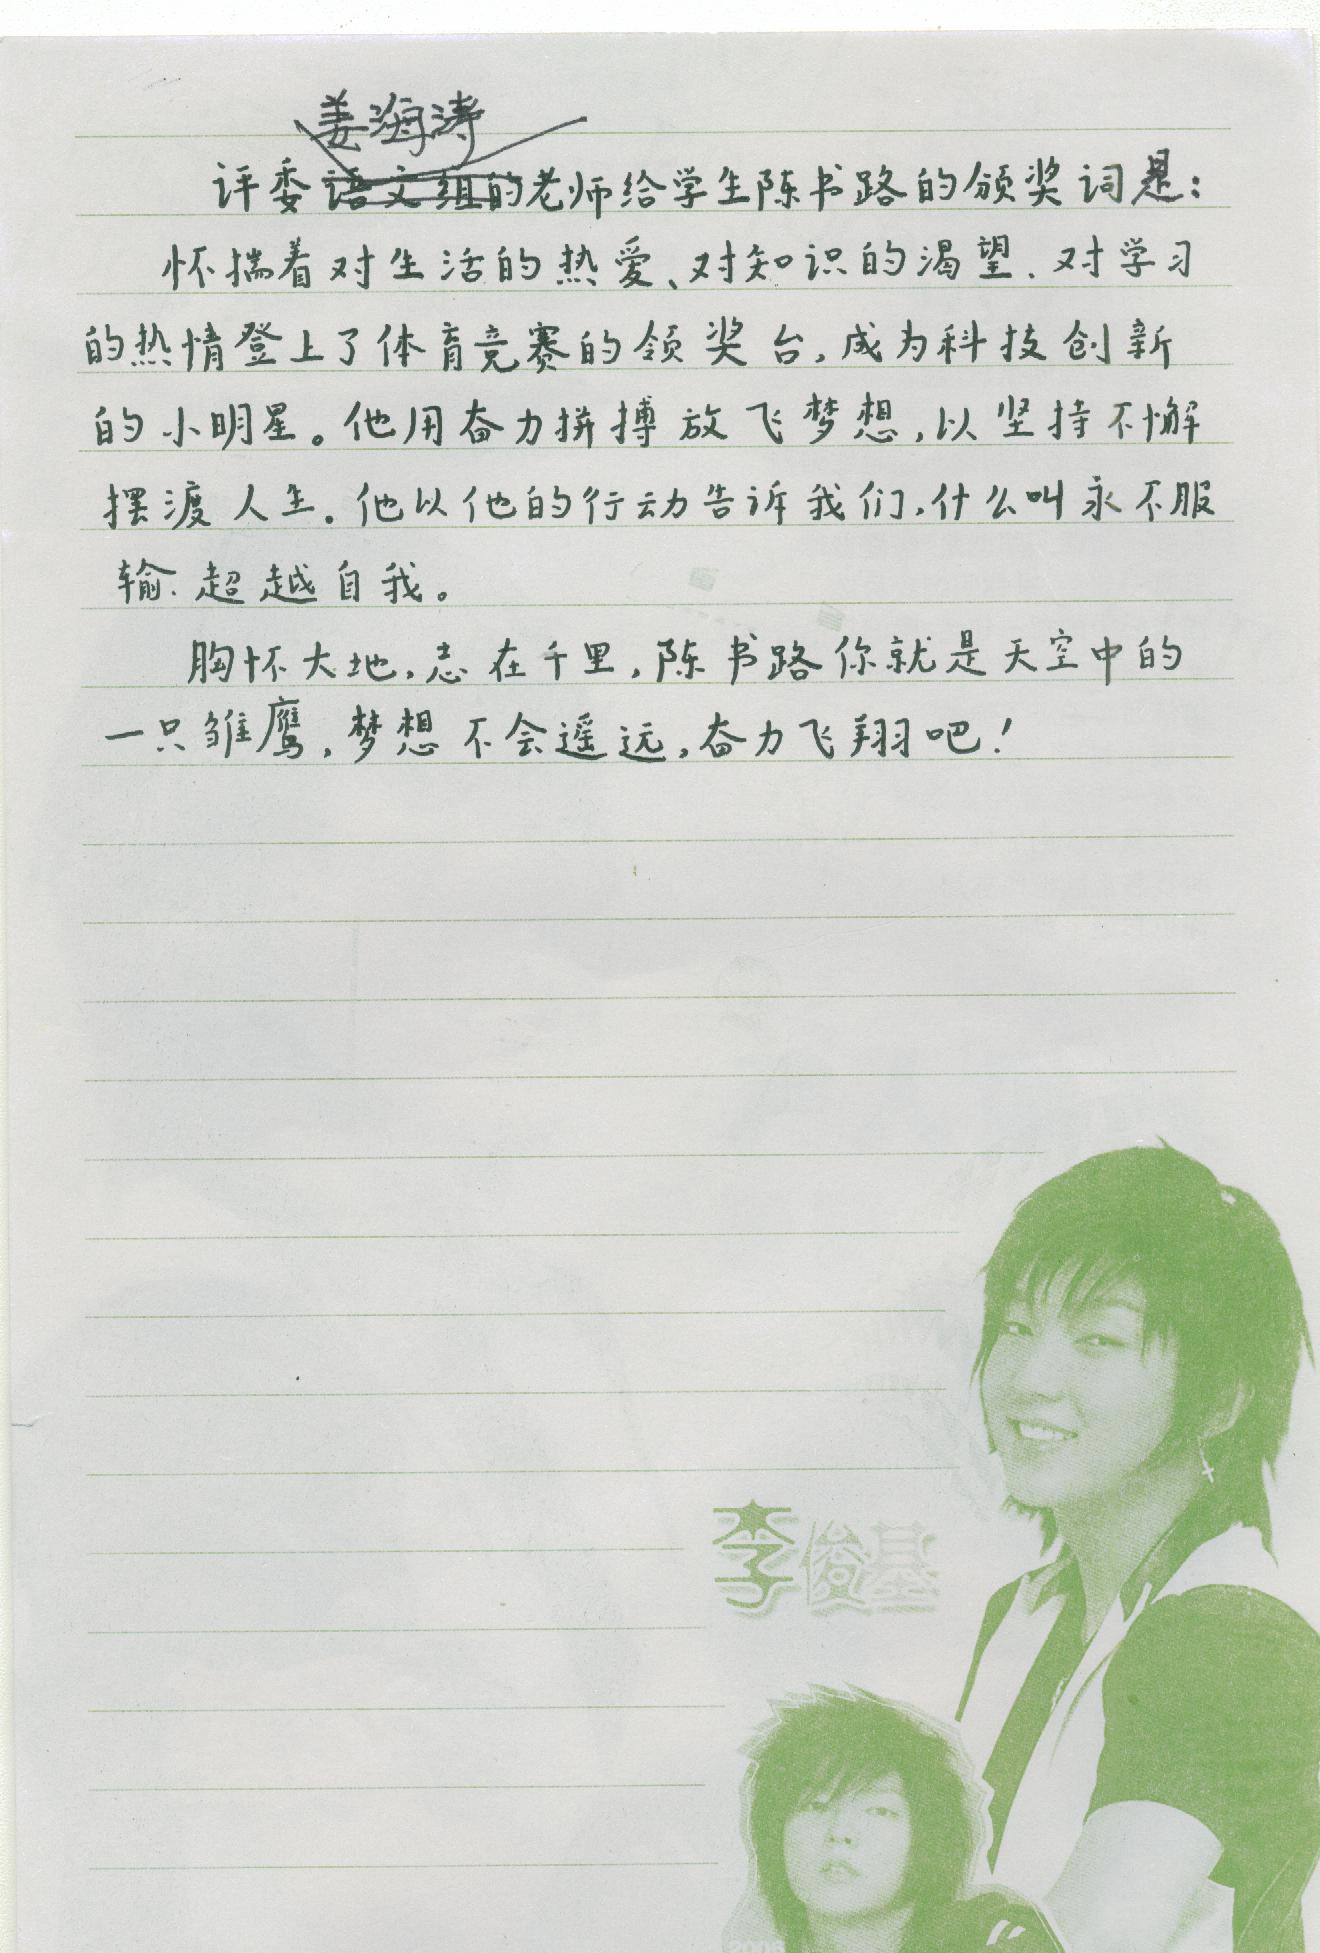 姜海涛
评委语文组的老师给学生陈书路的颁奖词是：
怀揣着对生活的热爱、对知识的渴望、对学习
的热情登上了体育竞赛的领奖台，成为科技创新
的小明星。他用奋力拼搏放飞梦想，以坚持不懈
摆渡人生。他以他的行动告诉我们，什么叫永不服
输、超越自我。
胸怀大地，志在千里，陈书路你就是天空中的
一只雏鹰，梦想不会遥远，奋力飞翔吧！
李俊基
2006